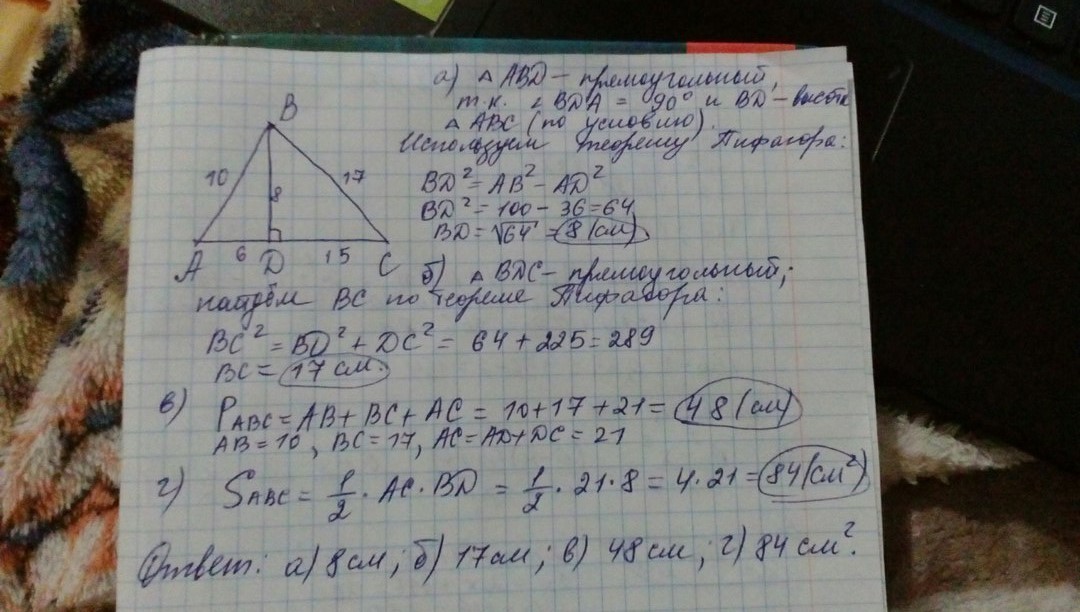 а) △ ABD – прямоугольный,
т.к. ∠BDA = 90° и BD – высота
△ ABC (по условию).
Используем теорему Пифагора:
B
10
8
17
A
6
D
15
C
BD² = AB² − AD²
BD² = 100 − 36 = 64
BD = √64 = 8 (см)
б) △ BDC – прямоугольный;
найдём BC по теореме Пифагора:
BC² = BD² + DC² = 64 + 225 = 289
BC = 17 см.
в) P_ABC = AB + BC + AC = 10 + 17 + 21 = 48 (см)
AB = 10, BC = 17, AC = AD + DC = 21
г) S_ABC = 1/2 · AC · BD = 1/2 · 21 · 8 = 4 · 21 = 84 (см²)
Ответ: а) 8 см; б) 17 см; в) 48 см; г) 84 см².